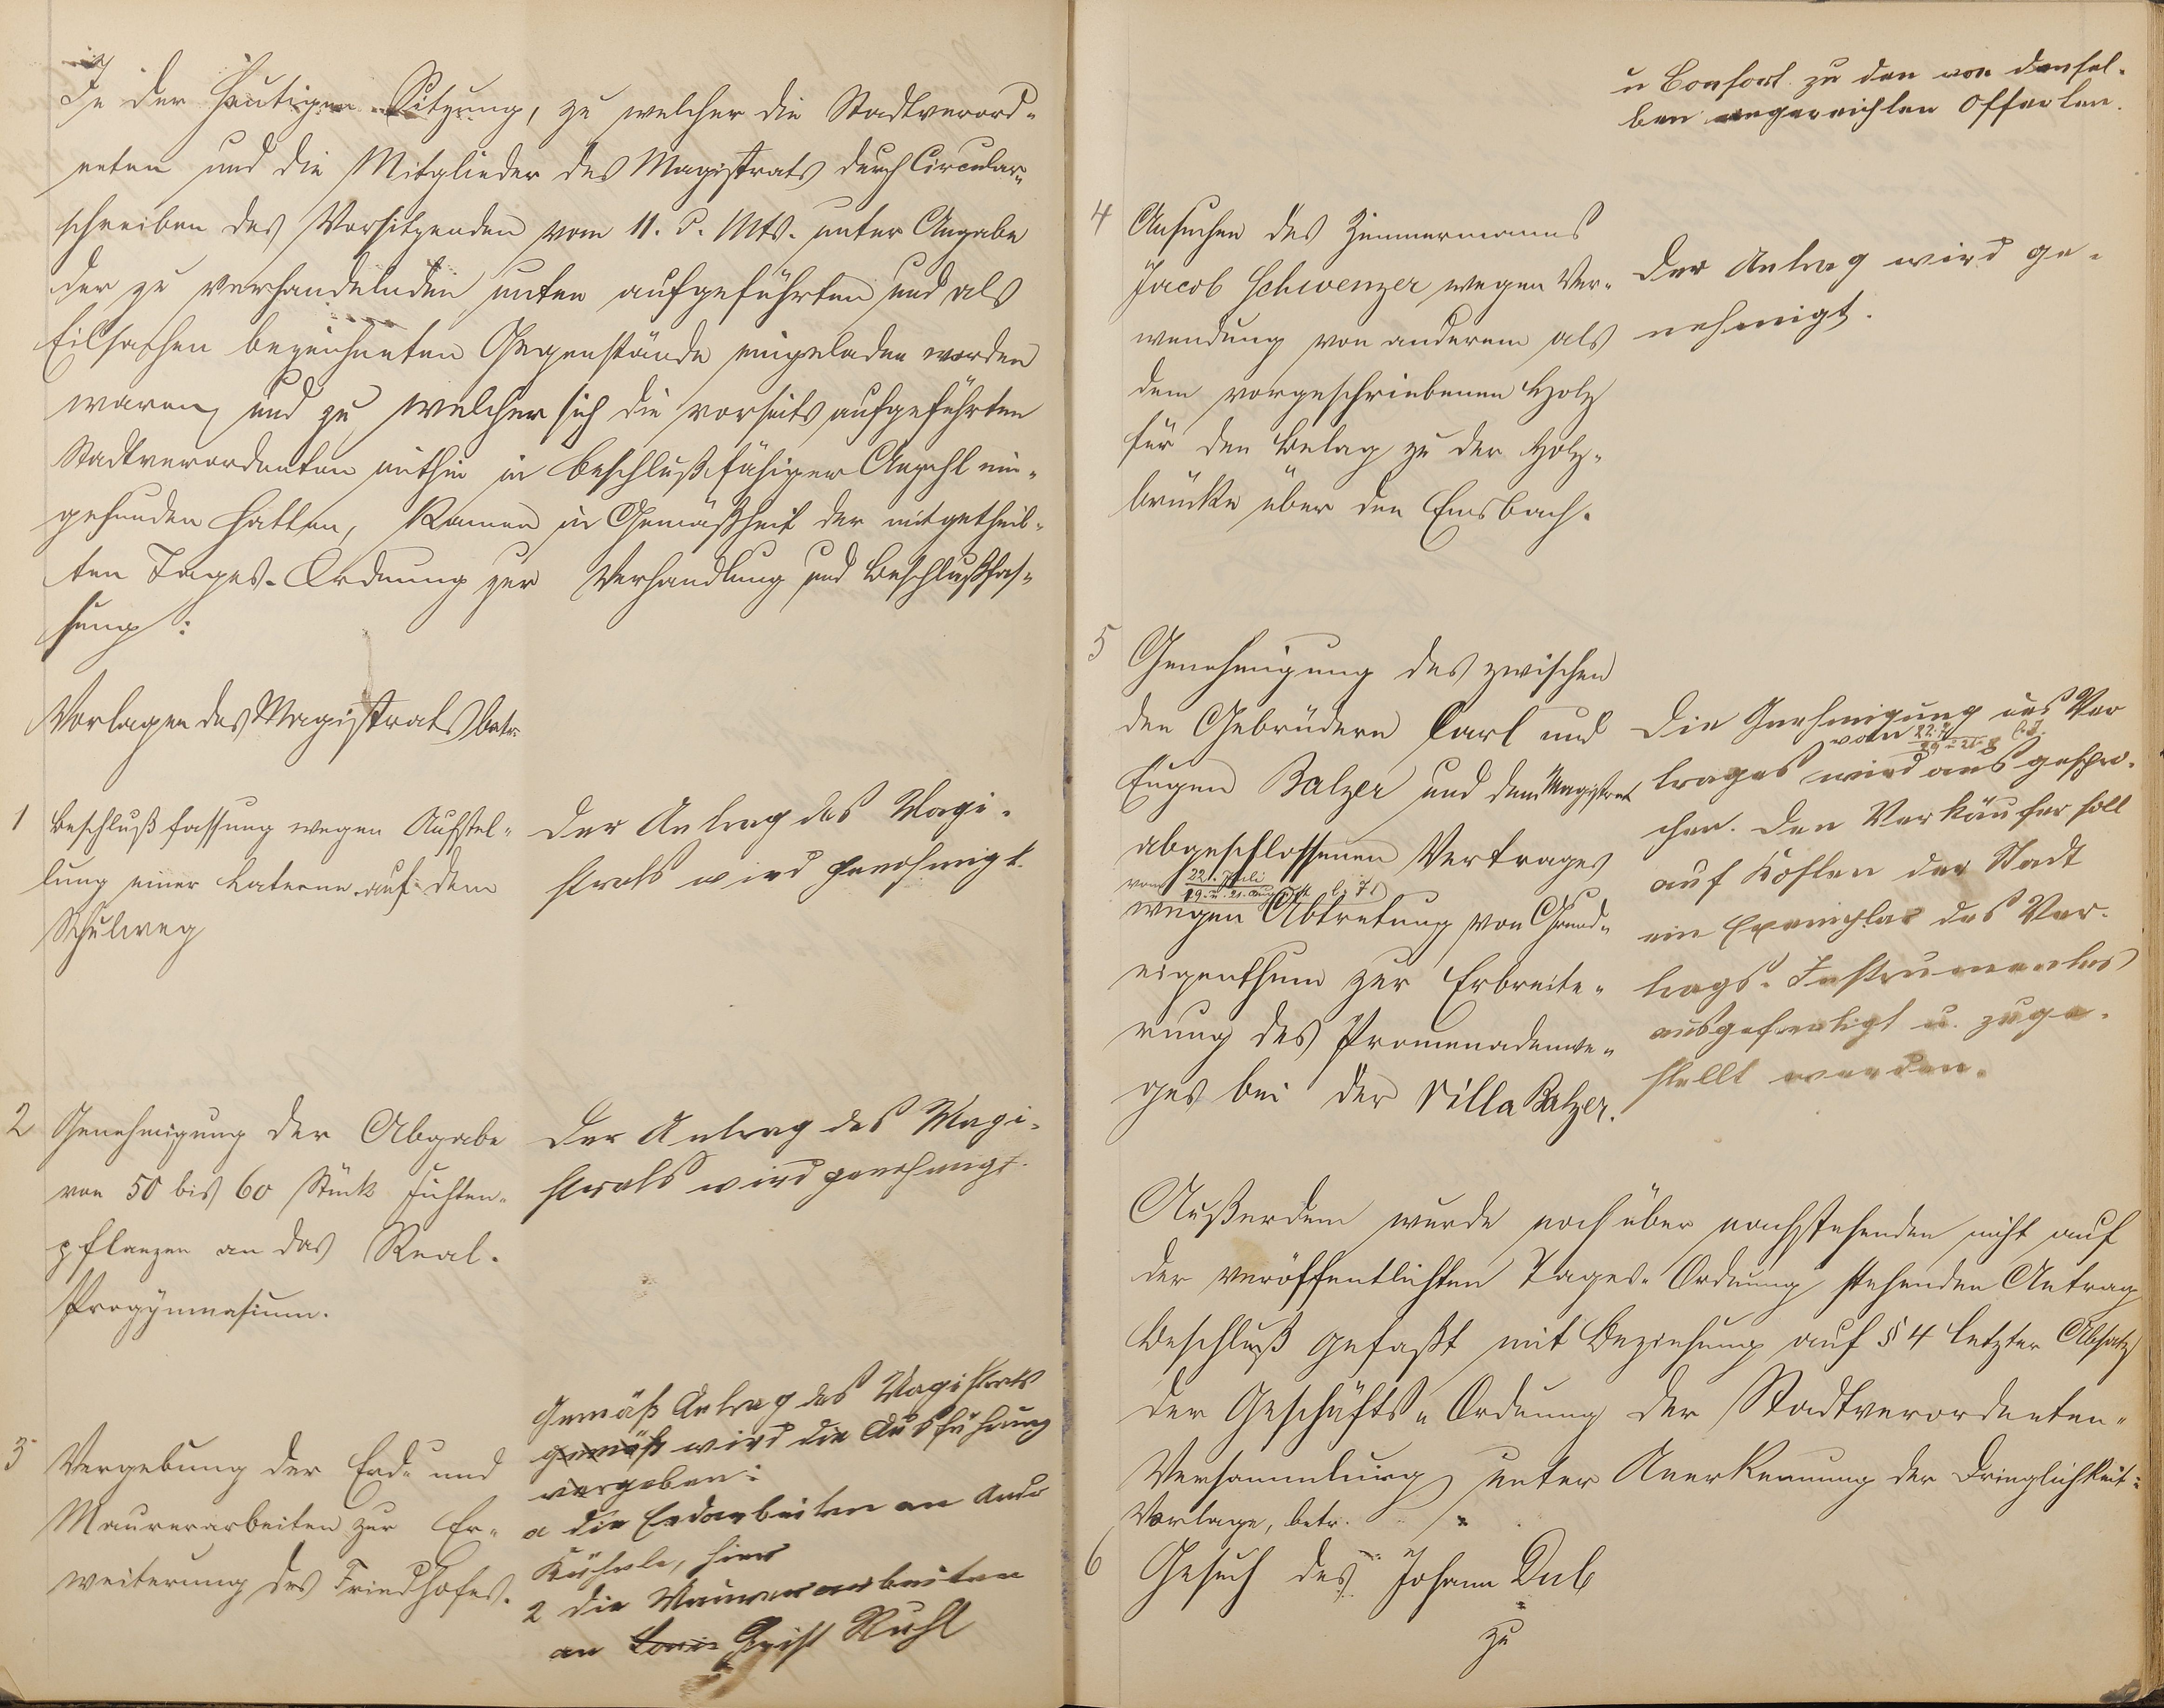 In der heutigen Sitzung, zu welcher die Stadtverord-
neten und die Mitglieder des Magistrats durch Circular-
schreiben des Vorsitzenden vom 11. d. Mts. unter Angabe
der zu verhandelnden unten aufgeführten und als
Eilsachen bezeichneten Gegenstände eingeladen worden
waren, und zu welcher sich die vorseits aufgeführten
Stadtverordneten mithin in beschlußfähiger Anzahl ein-
gefunden hatten, kamen in Gemäßheit der mitgetheil-
ten Tages-Ordnung zur Verhandlung und Beschlußfas-
sung:
Vorlagen des Magistrats betr.
1 Beschlußfassung wegen Aufstel-
lung einer Laterne auf dem
Schulweg
Der Antrag des Magi-
strats wird genehmigt.
2 Genehmigung der Abgabe
von 50 bis 60 Stück Fichten-
pflanzen an das Real-
Progymnasium.
Der Antrag des Magi-
strats wird genehmigt.
3 Vergebung der Erd- und
Maurerarbeiten zur Er-
weiterung des Friedhofes.
Gemäß Antrag des Magistrats
gemäß wird die Ausführung
vergeben:
a die Erdarbeiten an
hier
2 die Maurerarbeiten
an Louis Christ Ruhl
u Consort. zu den von densel-
ben eingereichten Offerten.
4 Ansuchen des Zimmermanns
Jacob Schwenzer wegen Ver-
wendung von anderem als
dem vorgeschriebenen Holz
für den Belag zu der Holz-
brücke über den Emsbach.
Der Antrag wird ge-
nehmigt.
5 Genehmigung des zwischen
den Gebrüdern Carl und
Eugen Balzer und dem Magistrat
abgeschlossenen Vertrages
vom 22. Juli
19. u. 21. August l. Js
wegen Abtretung von Grund-
eigenthum zur Erbreite-
rung des Promenadenwe-
ges bei der Villa Balzer.
Die Genehmigung des Ver
von 22. 7 / 19 u 21. 8 l. J.
trages wird ausgespro-
chen. Den Verkäufer soll
auf Kosten der Stadt
ein Exemplar des Ver-
trags-Instrumentes
ausgefertigt u. zuge-
stellt werden.
Außerdem wurde noch über nachstehenden nicht auf
der veröffentlichten Tages-Ordnung stehenden Antrag
Beschluß gefaßt mit Beziehung auf § 4 letzter Absatz
der Geschäfts-Ordnung der Stadtverordneten-
Versammlung unter Anerkennung der Dringlichkeit:
Vorlage, betr.
6 Gesuch des Johann Dub
zu